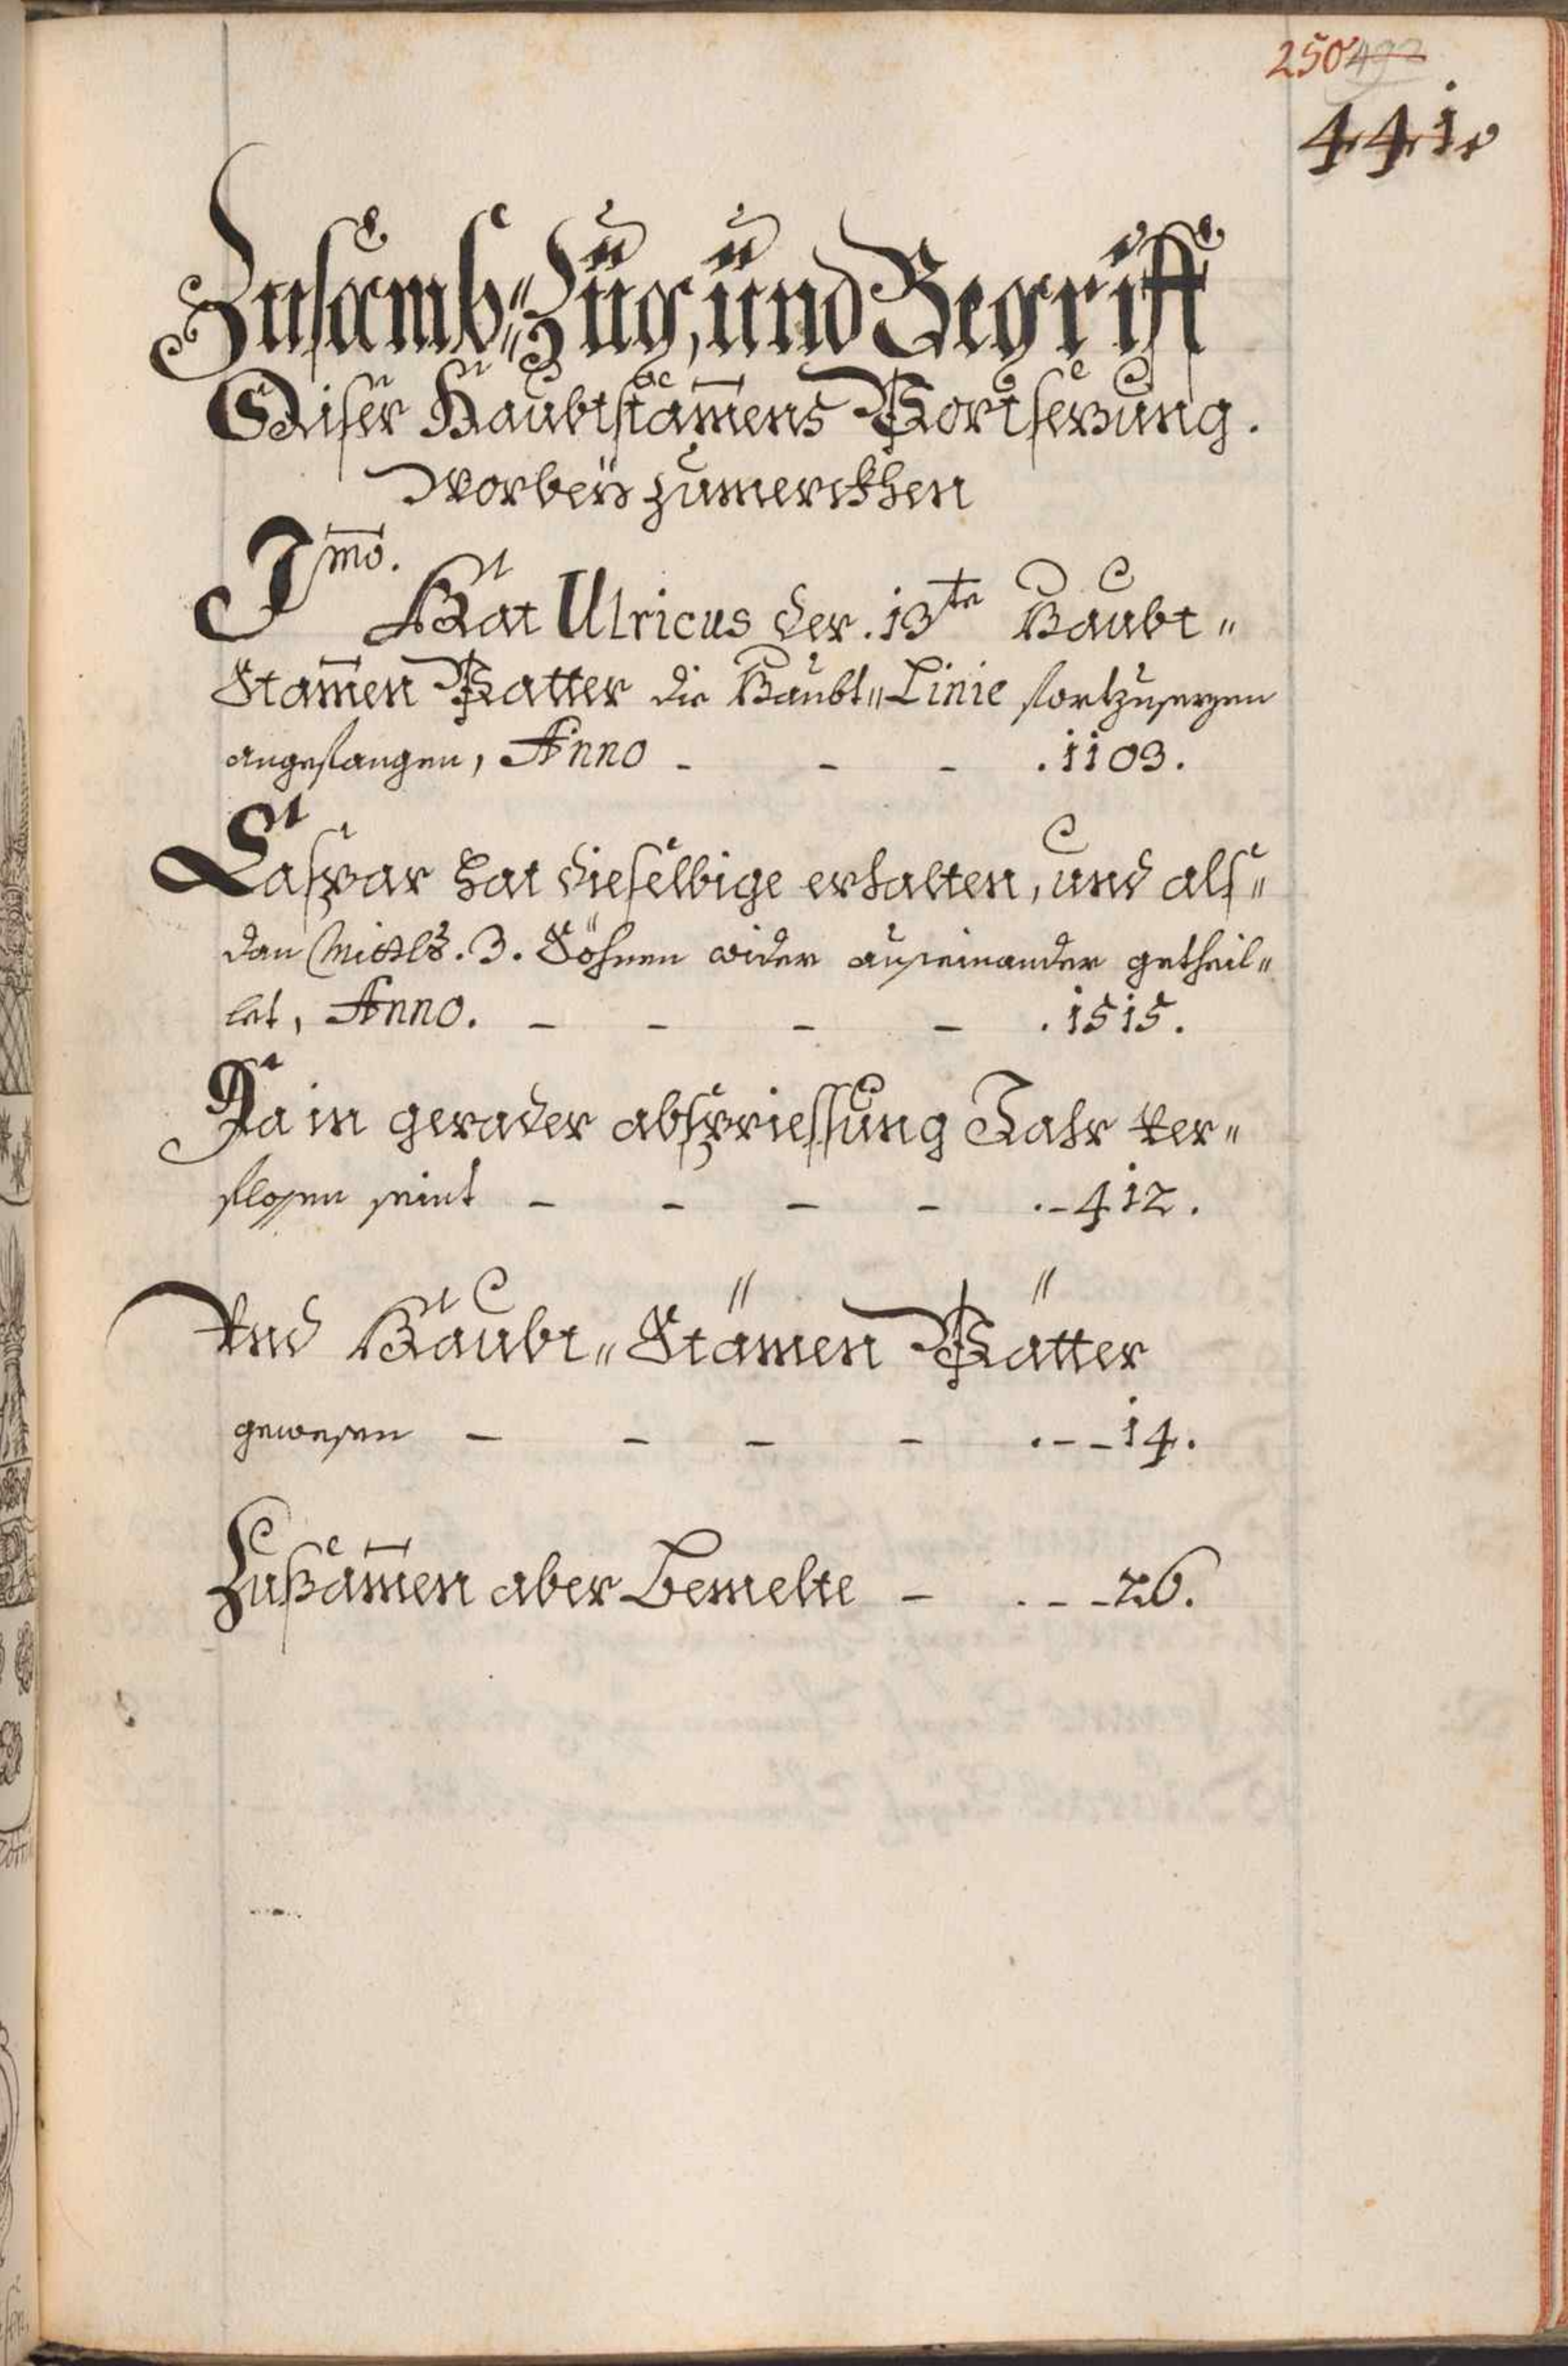 250 492
441.
Zusamb=Züg, ünd Begriff
Diser Haubtstam̅ens Vortsezung.
worbeÿ zumerckhen
I m̅o.
Hat Ulricus der .13te Haubt=
Stam̅en Vatter die Haubt=Linie fortzusezen
angefangen, Anno - - - .1103.
Caspar hat dieselbige erhalten, und als=
dan Mitls .3. Söhnen wider auseinander getheil=
let, Anno. - - - - .1515.
Da in gerader abspriessung Jahr ver=
flossen seint - - - - .-412.
Vnd Haubt=Stämen Vätter
gewesen - - - - .--14.
Zusam̅en aber Bemelte - .--26.